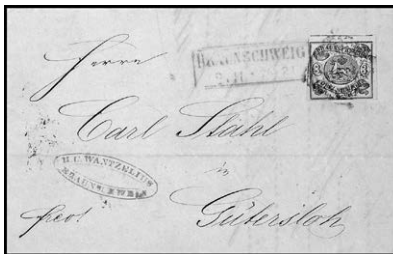 Herrn
BRAUNSCHWEIG
3 3
Carl Stahl
H. C. WANTZELIUS
BRAUNSCHWEIG
in
Gütersloh
frco!